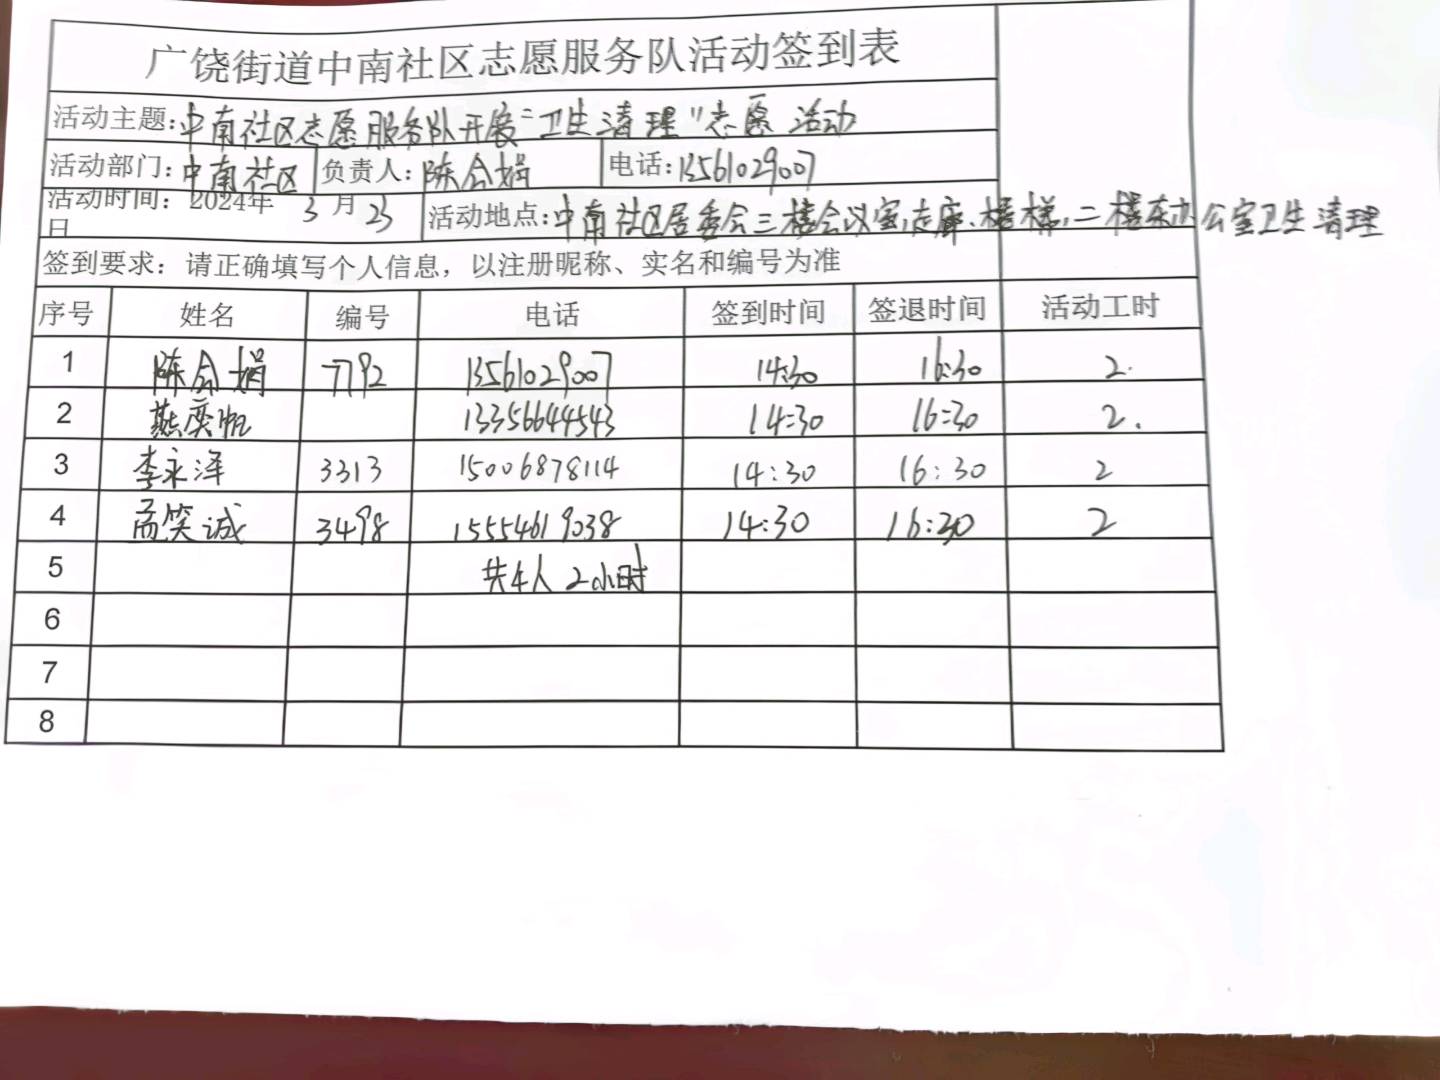 广饶街道中南社区志愿服务队活动签到表
活动主题:中南社区志愿服务队开展“卫生清理”志愿活动
活动部门:中南社区 负责人:陈会娟 电话:13561029007
活动时间:2024年 3 月 23
日 活动地点:中南社区居委会三楼会议室,走廊、楼梯,二楼东办公室卫生清理
签到要求:请正确填写个人信息,以注册昵称、实名和编号为准
序号 姓名 编号 电话 签到时间 签退时间 活动工时
1 陈会娟 7792 13561029007 14:30 16:30 2.
2 燕奕帆 13356644543 14:30 16:30 2.
3 李永泽 3313 15006878114 14:30 16:30 2
4 孟笑诚 3498 15554619038 14:30 16:30 2
5 共4人 2小时
6
7
8